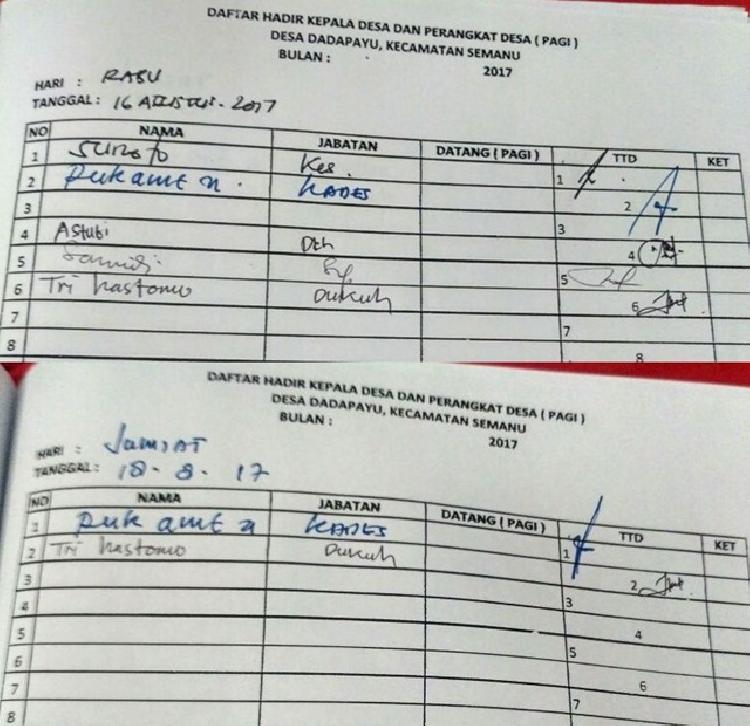 DAFTAR HADIR KEPALA DESA DAN PERANGKAT DESA ( PAGI )
DESA DADAPAYU, KECAMATAN SEMANU
BULAN :
2017
HARI : RABU
TANGGAL : 16 AGUSTUS. 2017
NO NAMA JABATAN DATANG ( PAGI ) TTD KET
1 SUROTO Kes. 1
2 Rukamtn. KADES 2
3 3
4 Astuti Dkh 4
5 5
6 Tri hastomo Dukuh 6
7 7
8 8
DAFTAR HADIR KEPALA DESA DAN PERANGKAT DESA ( PAGI )
DESA DADAPAYU, KECAMATAN SEMANU
BULAN :
2017
HARI : JUMAT
TANGGAL : 18 - 8 - 17
NO NAMA JABATAN DATANG ( PAGI ) TTD KET
1 KADES 1
2 Tri hastomo Dukuh 2
3 3
4 4
5 5
6 6
7 7
8